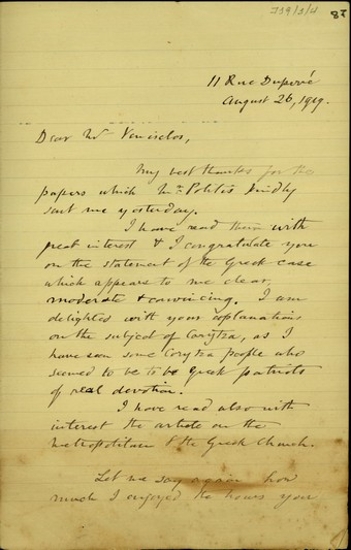 739/3/4
11 Rue Duperré
August 26, 1919.
Dear Mr Veniselos,
My best thanks for the
papers which Mr Politis kindly
sent me yesterday.
I have read them with
great interest & I congratulate you
on the statement of the Greek case
which appears to me clear,
moderate & convincing. I am
delighted with your explanations
on the subject of Corytza, as I
have seen some Corytza people who
seemed to be to be Greek patriots
of real devotion.
I have read also with
interest the article on the
Metropolitan & the Greek Church.
Let me say again how
much I enjoyed the hours you